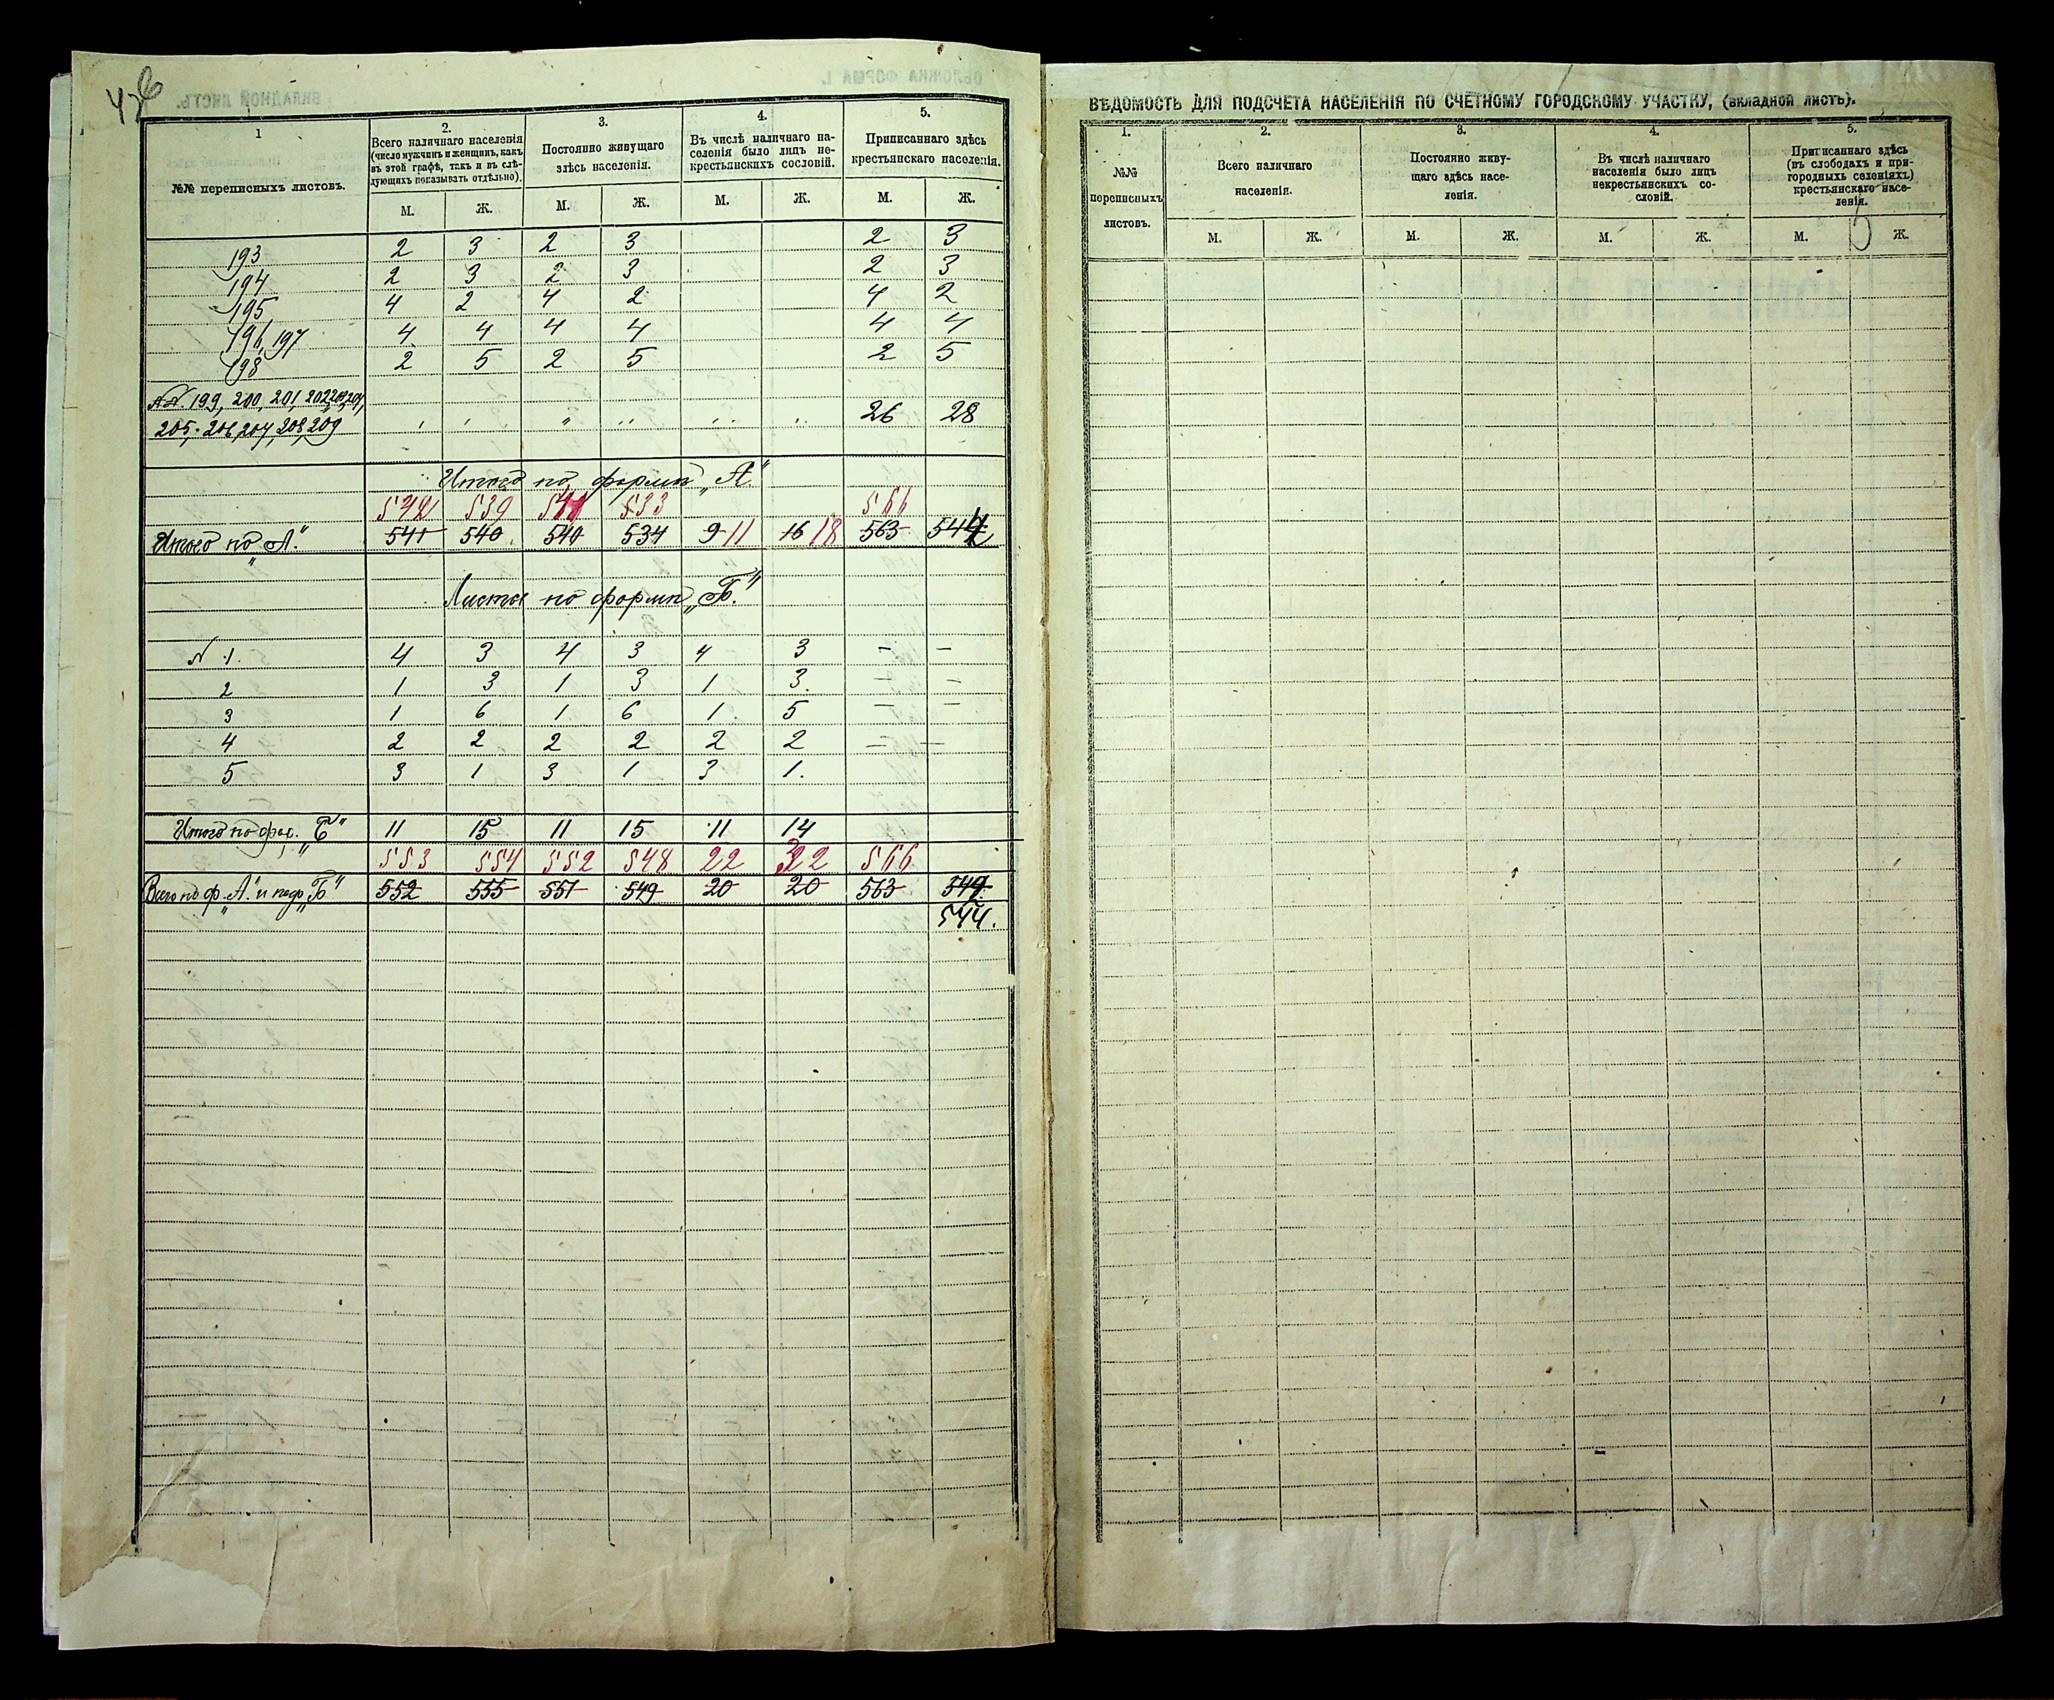 1
№№ переписныхъ листовъ.
2.
Всего наличнаго населенія
(число мужчинъ и женщинъ, какъ
въ этой графѣ, такъ и въ слѣ-
дующихъ показывать отдѣльно).
М. Ж.
3.
Постоянно живущаго
здѣсь населенія.
М. Ж.
4.
Въ числѣ наличнаго на-
селенія было лицъ не-
крестьянскихъ сословій.
М. Ж.
5.
Приписаннаго здѣсь
крестьянскаго населенія.
М. Ж.
193 2 3 2 3 2 3
194 2 3 2 3 2 3
195 4 2 4 2 4 2
196, 197 4 4 4 4 4 4
198 2 5 2 5 2 5
№№ 199, 200, 201, 202, 203, 204,
205, 206, 207, 208, 209 26 28
Итого по формѣ „А“
542 539 541 533 566
Итого по „А.“ 541 540 540 534 9 11 16 18 563 544
Листы по формѣ „Б.“
№ 1. 4 3 4 3 4 3 — —
2 1 3 1 3 1 3. — —
3 1 6 1 6 1 5 — —
4 2 2 2 2 2 2 — —
5 3 1 3 1 3 1.
Итого по фор. „Б“ 11 15 11 15 11 14
553 554 552 548 22 32 566
Всего по ф. „А.“ и по ф. „Б“ 552 555 551 549 20 20 563 549
544.
ВѢДОМОСТЬ ДЛЯ ПОДСЧЕТА НАСЕЛЕНІЯ ПО СЧЕТНОМУ ГОРОДСКОМУ УЧАСТКУ, (вкладной листъ).
1.
№№
переписныхъ
листовъ.
2.
Всего наличнаго
населенія.
М. Ж.
3.
Постоянно живу-
щаго здѣсь насе-
ленія.
М. Ж.
4.
Въ числѣ наличнаго
населенія было лицъ
некрестьянскихъ со-
словій.
М. Ж.
5.
Приписаннаго здѣсь
(въ слободахъ и при-
городныхъ селеніяхъ)
крестьянскаго насе-
ленія.
М. Ж.